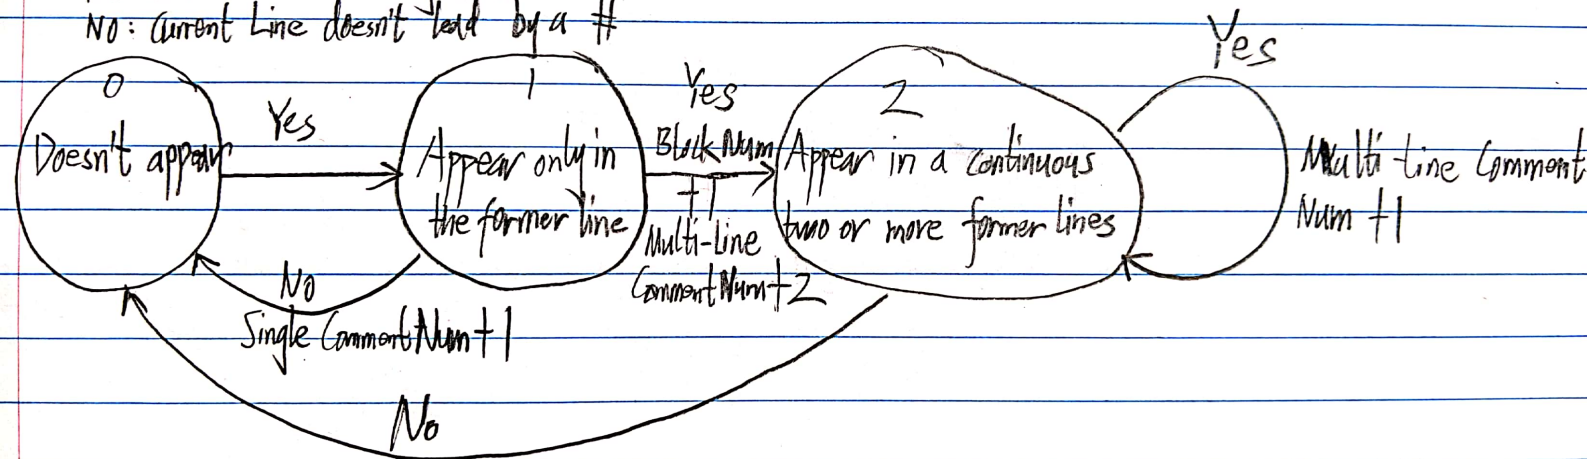 No: Current Line doesn't lead by a #
0
Doesn't appear
Yes
1
Appear only in
the former line
Yes
Block Num
+1
Multi-Line
Comment Num+2
2
Appear in a continuous
two or more former lines
Yes
Multi-Line Comment
Num +1
No
Single Comment Num+1
No